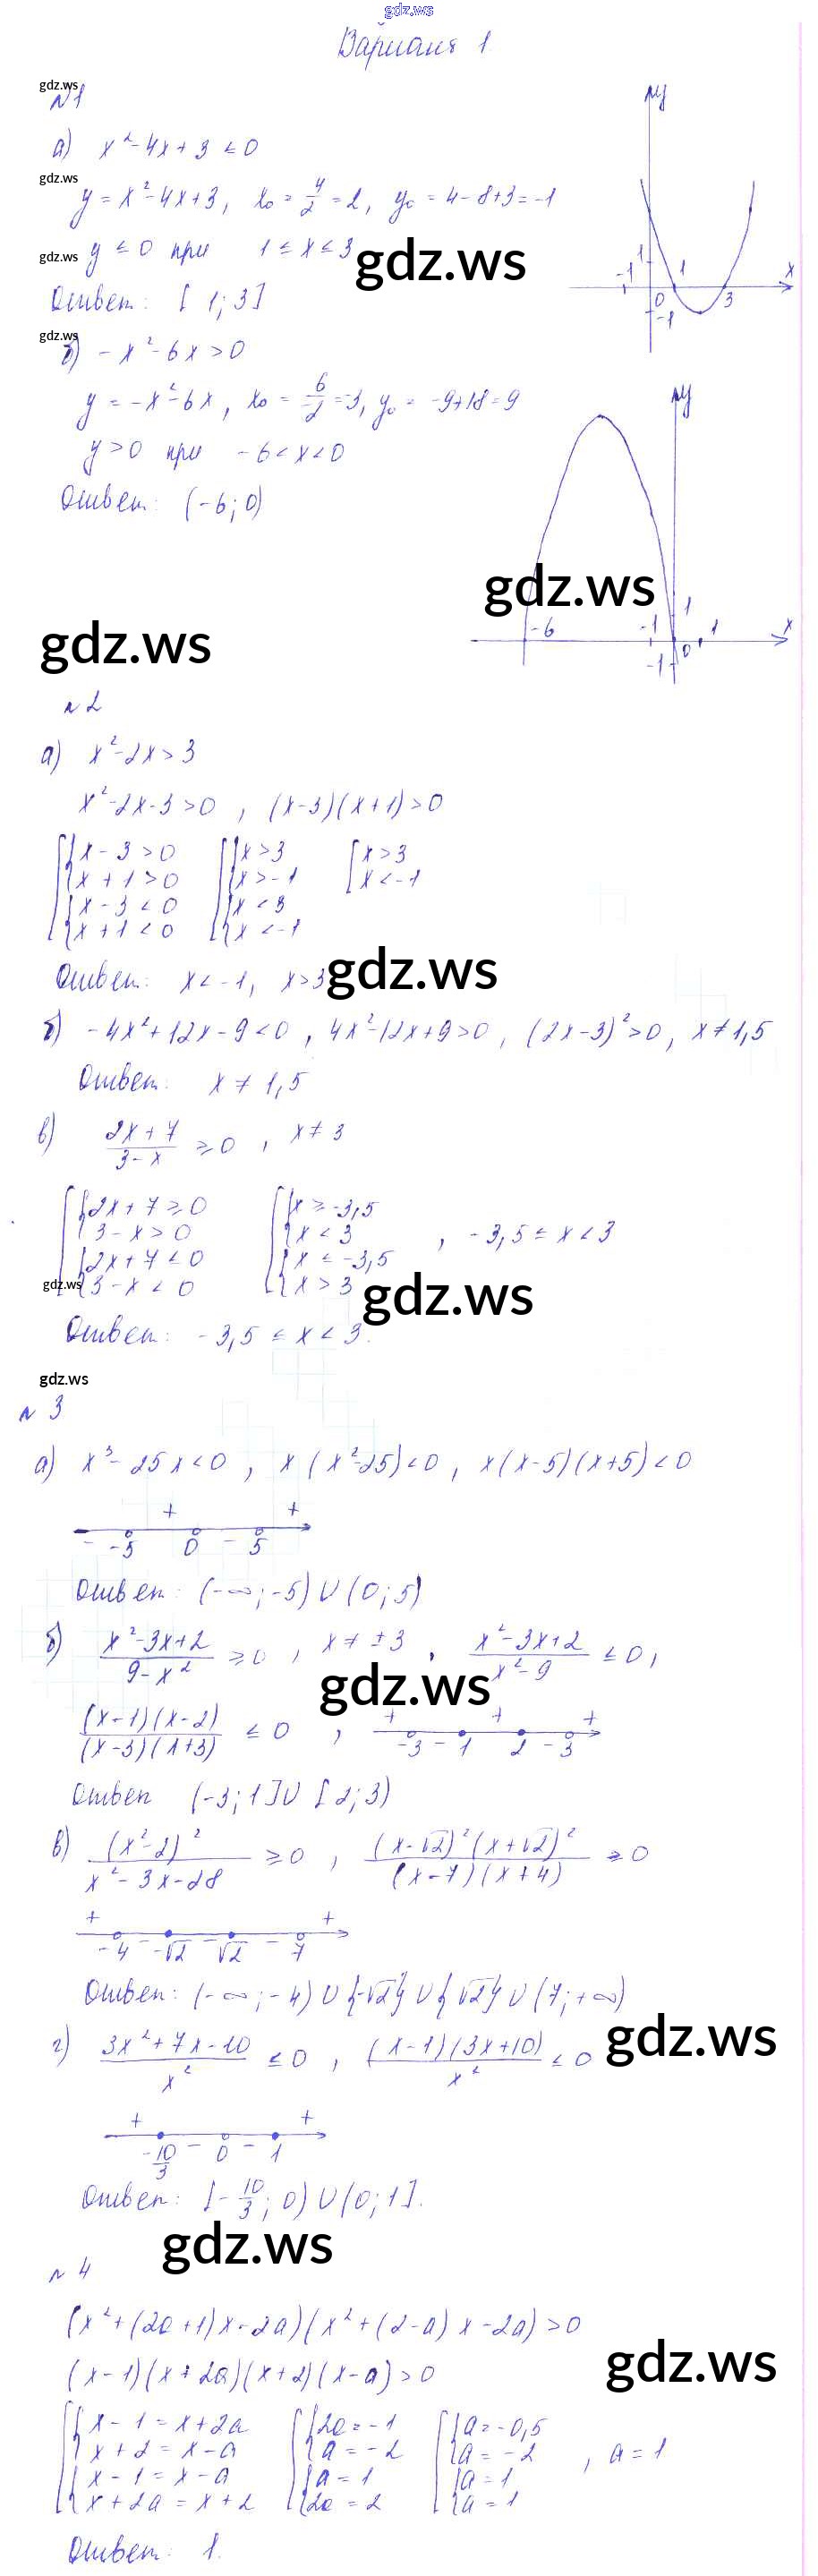 gdz.ws
Вариант 1.
gdz.ws
№1
а) x² - 4x + 3 ≤ 0
gdz.ws
y = x² - 4x + 3, x₀ = 4/2 = 2, y₀ = 4 - 8 + 3 = -1
gdz.ws y ≤ 0 при 1 ≤ x ≤ 3 gdz.ws
Ответ: [1; 3]
y
1
-1 0 1 3 x
-1
gdz.ws
б) -x² - 6x > 0
y = -x² - 6x, x₀ = 6/-2 = -3, y₀ = -9 + 18 = 9
y > 0 при -6 < x < 0
Ответ: (-6; 0)
y
1
-6 -1 0 1 x
-1
gdz.ws
gdz.ws
№2
а) x² - 2x > 3
x² - 2x - 3 > 0, (x - 3)(x + 1) > 0
[{x - 3 > 0 [{x > 3 [x > 3
{x + 1 > 0 {x > -1 x < -1
{x - 3 < 0 {x < 3
{x + 1 < 0 {x < -1
Ответ: x < -1, x > 3 gdz.ws
б) -4x² + 12x - 9 < 0, 4x² - 12x + 9 > 0, (2x - 3)² > 0, x ≠ 1,5
Ответ: x ≠ 1,5
в) (2x + 7)/(3 - x) ≥ 0, x ≠ 3
[{2x + 7 ≥ 0 [{x ≥ -3,5
{3 - x > 0 {x < 3 , -3,5 ≤ x < 3
{2x + 7 ≤ 0 {x ≤ -3,5
gdz.ws {3 - x < 0 {x > 3 gdz.ws
Ответ: -3,5 ≤ x < 3.
gdz.ws
№ 3
а) x³ - 25x < 0, x(x² - 25) < 0, x(x - 5)(x + 5) < 0
+ +
- -5 0 - 5
Ответ: (-∞; -5) ∪ (0; 5)
б) (x² - 3x + 2)/(9 - x²) ≥ 0, x ≠ ±3, (x² - 3x + 2)/(x² - 9) ≤ 0,
gdz.ws
((x - 1)(x - 2))/((x - 3)(x + 3)) ≤ 0,
+ + +
-3 - 1 2 - 3
Ответ (-3; 1] ∪ [2; 3)
в) (x² - 2)²/(x² - 3x - 28) ≥ 0, ((x - √2)²(x + √2)²)/((x - 7)(x + 4)) ≥ 0
+ +
-4 - -√2 - √2 - 7
Ответ: (-∞; -4) ∪ {-√2} ∪ {√2} ∪ (7; +∞)
г) (3x² + 7x - 10)/x² ≤ 0, ((x - 1)(3x + 10))/x² ≤ 0 gdz.ws
+ +
-10/3 - 0 - 1
Ответ: [-10/3; 0) ∪ (0; 1].
gdz.ws
№ 4
(x² + (2a + 1)x - 2a)(x² + (2 - a)x - 2a) > 0
(x - 1)(x + 2a)(x + 2)(x - a) > 0 gdz.ws
[{x - 1 = x + 2a [{2a = -1 [{a = -0,5
{x + 2 = x - a {a = -2 {a = -2 , a = 1
{x - 1 = x - a {a = 1 {a = 1
{x + 2a = x + 2 {2a = 2 {a = 1
Ответ: 1.